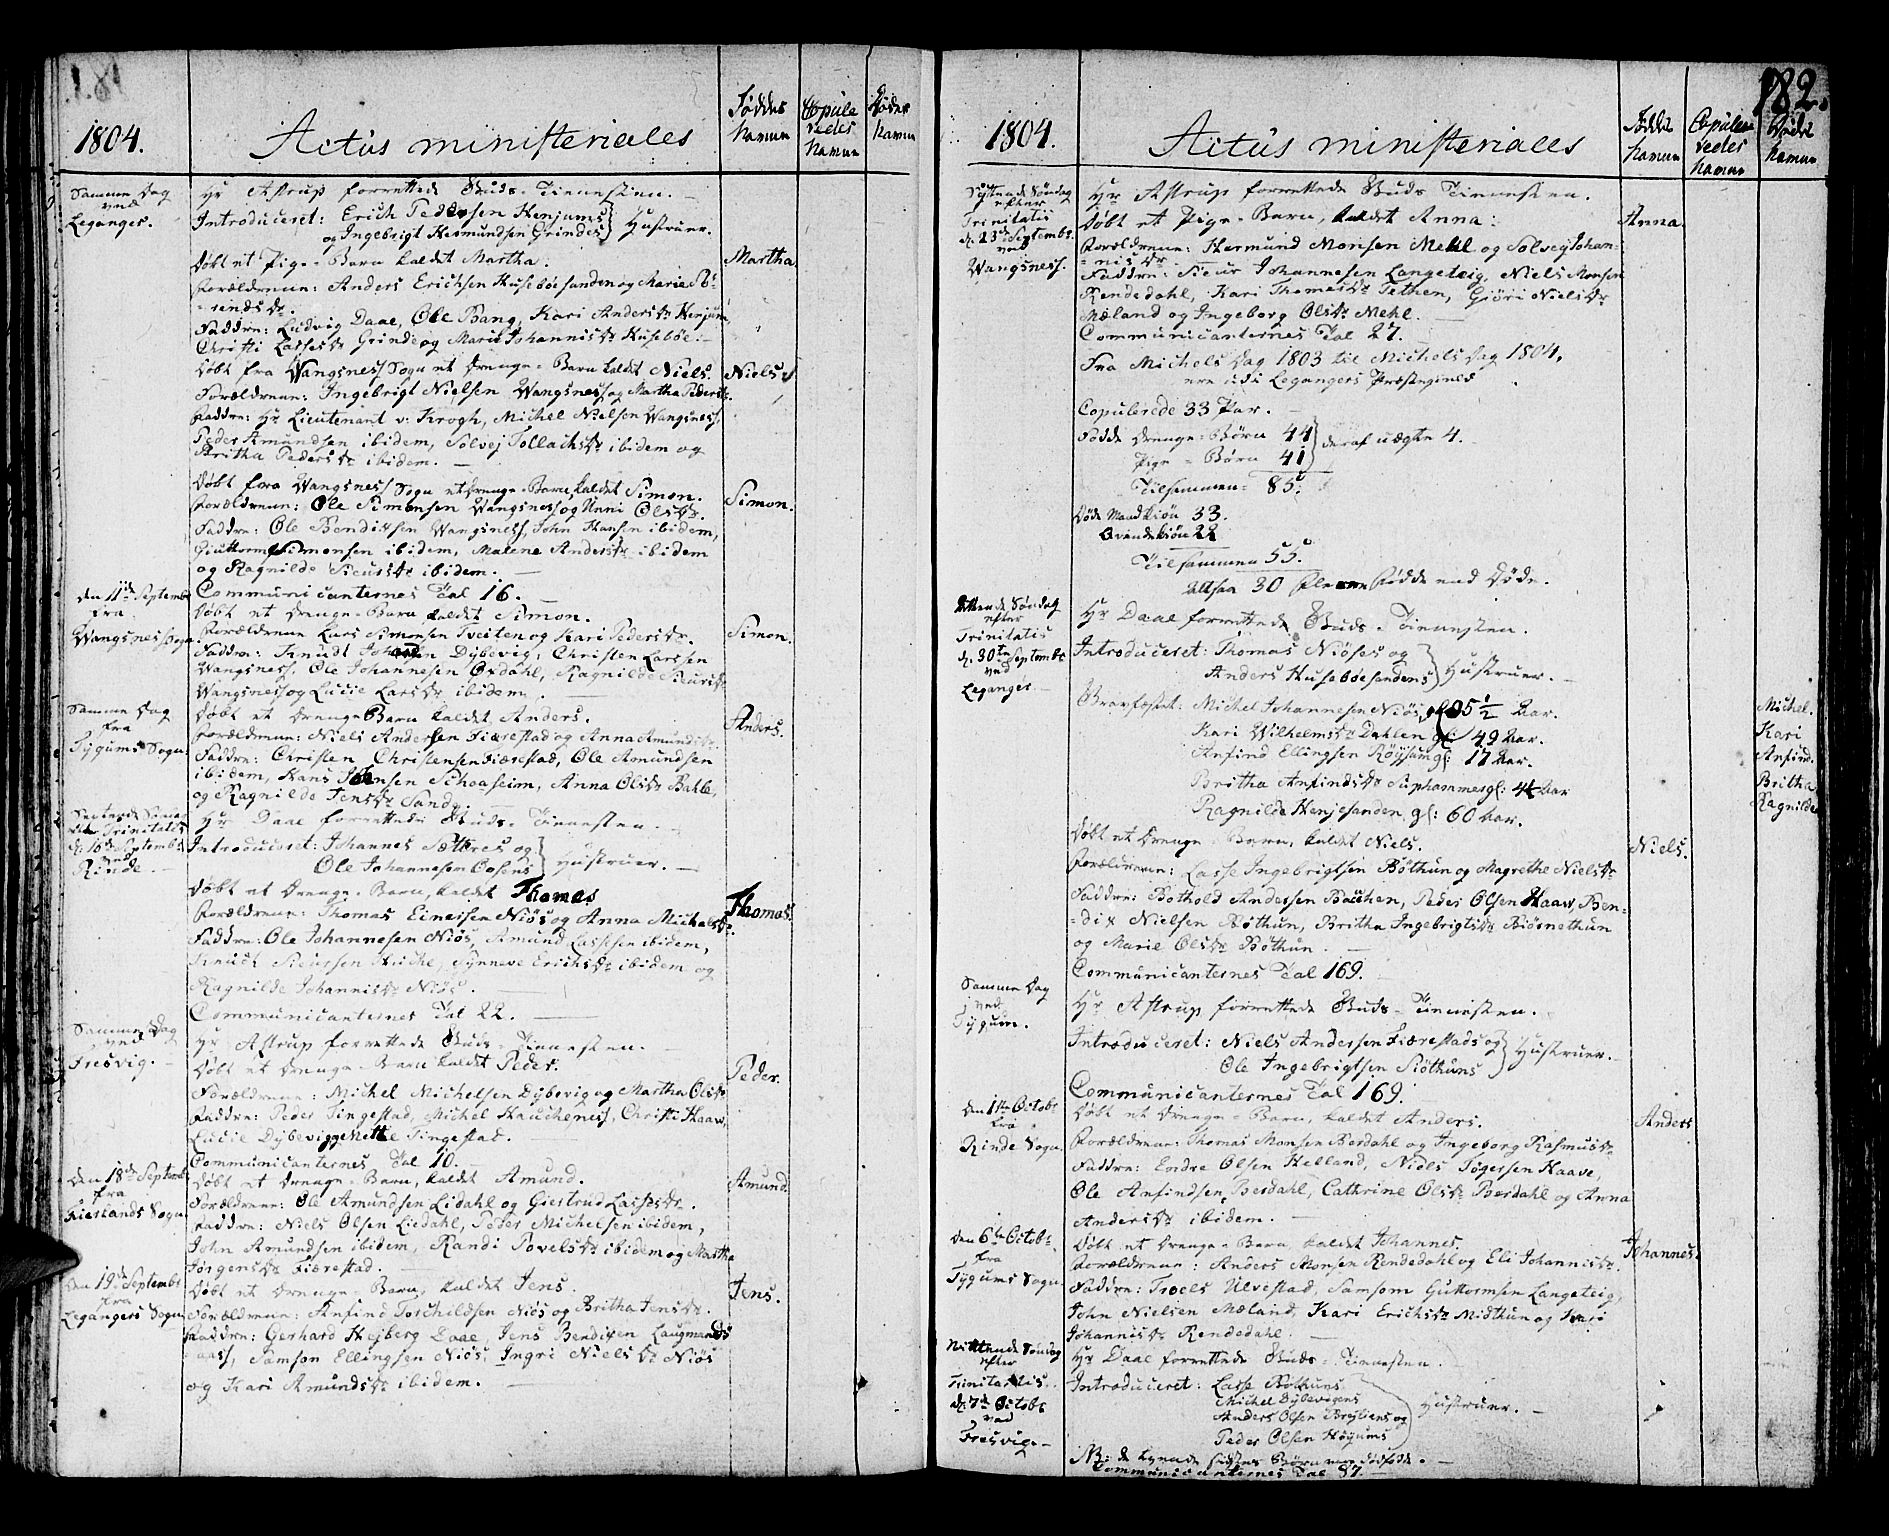 181.
1804.
Actus ministeriales
Føddes Navne
Copuleredes Navne
Dødes Navne
Samme Dag
ved
Leganger.
Hr Astrup forrettede Guds-Tienesten.
Introduceret: Erich Pedersen Henjums
og Ingebrigt Hermundsen Grindes Hustruer.
Døbt et Pige-Barn kaldet Martha.
Martha
Forældrene: Anders Erichsen Husebøesanden og Marie
Faddre: Ludvig Daae, Ole Bang, Kari Andersdr Henjum,
Christi Lassesdr Grinde og Marie Johannisdr Husebøe.
Døbt fra Wangsness Sogn et Drenge-Barn kaldet Niels.
Niels
Forældrene: Ingebrigt Nielsen Wangsness og Martha Pedersdr.
Faddre: Hr Lieutenant v: Krogh, Michel Nielsen Wangsness,
Peder Amundsen ibidem, Solvej Tollachsdr ibidem og
Britha Pedersdr ibidem.
Døbt fra Wangsness Sogn et Drenge-Barn, kaldet Simon.
Simon.
Forældrene: Ole Simonsen Wangsness og Unni Olsdr.
Faddre: Ole Bendixsen Wangsness, John Hansen ibidem,
Guttorm Simonsen ibidem, Malene Andersdr ibidem
og Ragnilde Sieursdr ibidem.
Communicanternes Tal 16.
den 11te Septembr
fra
Wangsness Sogn.
Døbt et Drenge-Barn, kaldet Simon.
Simon.
Forældrene Lars Simonsen Tveiten og Kari Pedersdr.
Faddre: Knudt Dybevig, Christen Larssen
Wangsness, Ole Johannesen Oxdahl, Ragnilde Sieursdr
Wangsness og Lucie Larsdr ibidem.
Samme Dag
fra
Tygums Sogn.
Døbt et Drenge-Barn kaldet, Anders.
Anders.
Forældrene: Niels Andersen Fiærestad og Anna Amundsdr.
Faddre: Christen Christensen Fiærestad, Ole Amundsen
ibidem, Hans Schoasheim, Anna Olsdr Bahle,
og Ragnilde Jensdr Sande.
Trinitatis
d: 16de Septembr
ved
Rinde.
Hr Daae forrettede Guds-Tienesten.
Introduceret: Johannes Sætres og
Ole Johannesen Cosens Hustruer.
Døbt et Drenge-Barn, kaldet Thomas
Thomas.
Forældrene: Thomas Einersen Niøs og Anna Michelsdr.
Faddre: Ole Johannesen Niøs, Amund Lassesen ibidem,
Knuch Sieursen Huchl, Synneve Erichsdr ibidem og
Ragnilde Johannisdr Niøs.
Communicanternes Tal 22.
Samme Dag
ved
Fresvig.
Hr Astrup forrettede Guds-Tienesten.
Døbt et Drenge-Barn kaldet Peder.
Peder.
Forældrene: Michel Michelsen Dybevig og Martha Olsdr
Faddre: Peder Tingestad, Michel Hauchenes, Christi Haaw,
Lucie Dybevig Tingestad.
Communicanternes Tal 10.
Den 18de Septembr
fra
Fierlands Sogn
Døbt et Drenge-Barn, kaldet Amund.
Amund.
Forældrene: Ole Amundsen Lidahl og Giertrud Lassesdr.
Faddre: Niels Olsen Liedahl, Peder Michelsen ibidem,
John Amundsen ibidem, Randi Povelsdr ibidem og Martha
Jørgensdr Fiærestad.
Den 19de Septembr
fra
Legangers Sogn
Døbt et Drenge-Barn, kaldet Jens.
Jens.
Forældrene: Anfind Torchildsen Niøs og Britha Jensdr.
Faddre: Gerhard Hejberg Daae, Jens Bendixen Laugmands-
aass, Samson Ellingsen Niøs, Ingri Nielsdr Niøs
og Kari Amundsdr ibidem.
182.
1804.
Actus ministeriales
Føddes Navne
Copuleredes Navne
Dødes Navne
Syttende Søndag
efter
Trinitatis
d. 23de Septembr.
ved
Wangsness.
Hr Astrup forrettede Guds Tienesten.
Døbt et Pige-Barn, kaldet Anna:
Anna.
Forældrene: Hermund Monsen Mehl og Solvej Johan-
nisdr
Faddre: Sieur Johannesen Langeteig, Niels Monsen
Rendedahl, Kari Thomasdr Tethen, Giøri Nielsdr
Mæland og Ingeborg Olsdr Mehl.
Communicanternes Tal 27.
Fra Michels Dag 1803 til Michels Dag 1804,
ere udi Legangers Præstegield
Copulerede 33 Par.
Fødde Drenge-Børn 44
Pige-Børn 41 deraf uægte 4.
Tilsammen 85.
Døde Mandkiøn 33.
Qvindekiøn 22
Tilsammen 55.
Altsaa 30 flere Fødde end Døde.
Attende Søndag
efter
Trinitatis
d. 30te Septembr
ved
Leganger.
Hr Daae forrettede Guds-Tienesten.
Introduceret: Thomas Niøses og
Anders Husebøesandens Hustruer.
Gravfæstet: Michel Johannesen Niøs, 35 1/2 Aar.
Michel.
Kari Wilhelmsdr Dahlen gl: 49 Aar.
Kari
Anfind Ellingsen Røysum gl: 17 Aar.
Anfind.
Britha Anfindsdr Suphammer gl: 44 Aar
Britha
Ragnilde Henjesanden gl: 60 Aar.
Ragnilde
Døbt et Drenge-Barn, kaldet Niels.
Niels.
Forældrene: Lasse Ingebrigtsen Bøthun og Magrethe Nielsdr
Faddre: Bothold Andersen Bauhen, Peder Olsen Haaw, Ben-
dix Nielsen Bøthun, Britha Ingebrigtsdr Biønnethun
og Marie Olsdr Bøthun.
Communicanternes Tal 169.
Samme Dag
ved
Tygum.
Hr Astrup forrettede Guds-Tienesten.
Introduceret: Niels Andersen Fiærestads og
Ole Ingebrigtsen Siøthuns Hustruer.
Communicanternes Tal 169.
den 1ste Octobr
fra
Rinde Sogn.
Døbt et Drenge-Barn, kaldet Anders.
Anders
Forældrene: Thomas Monsen Berdahl og Ingeborg Rasmusdr
Faddre: Endre Olsen Helland, Niels Søgersen Haave,
Ole Anfindsen Berdahl, Cathrine Olsdr Berdahl og Anna
Andersdr ibidem.
den 6te Octobr
fra
Tygums Sogn.
Døbt et Drenge-Barn, kaldet Johannes.
Johannes.
Forældrene: Anders Monsen Rendedahl og Eli Johannisdr.
Faddre: Troels Ulvestad, Samsom Guttormsen Langeteig,
John Nielsen Mæland, Kari Erichsdr Midthun og
Johannisdr Rendedahl.
Nittende Søndag
efter
Trinitatis
d. 7de Octobr
ved
Fresvig.
Hr Daae forrettede Guds-Tienesten.
Introduceret: Lasse Bøthuns
Michel Dybevigens
Anders Olsen og
Peder Olsen Høyums Hustruer.
NB: de tvende sidstes Børn vare dødfødde.
Communicanternes Tal 87